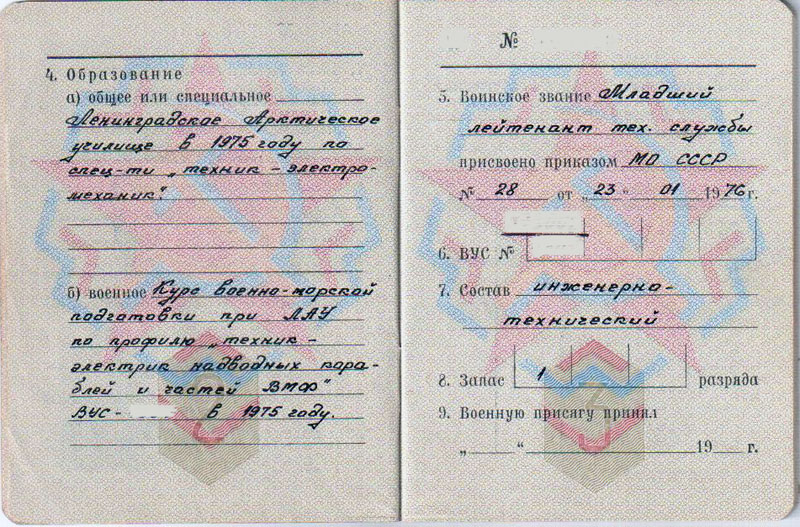 4. Образование
а) общее или специальное
Ленинградское Арктическое
училище в 1975 году по
спец-ти „техник – электро-
механик".
б) военное Курс военно-морской
подготовки при ЛАУ
по профилю „техник –
электрик надводных кора-
блей и частей ВМФ"
ВУС- в 1975 году.
№
5. Воинское звание Младший
лейтенант тех. службы
присвоено приказом МО СССР
№ 28 от „23" 01 1976 г.
6. ВУС №
7. Состав инженерно-
технический
8. Запас 1 разряда
9. Военную присягу принял
„ “ 19 г.